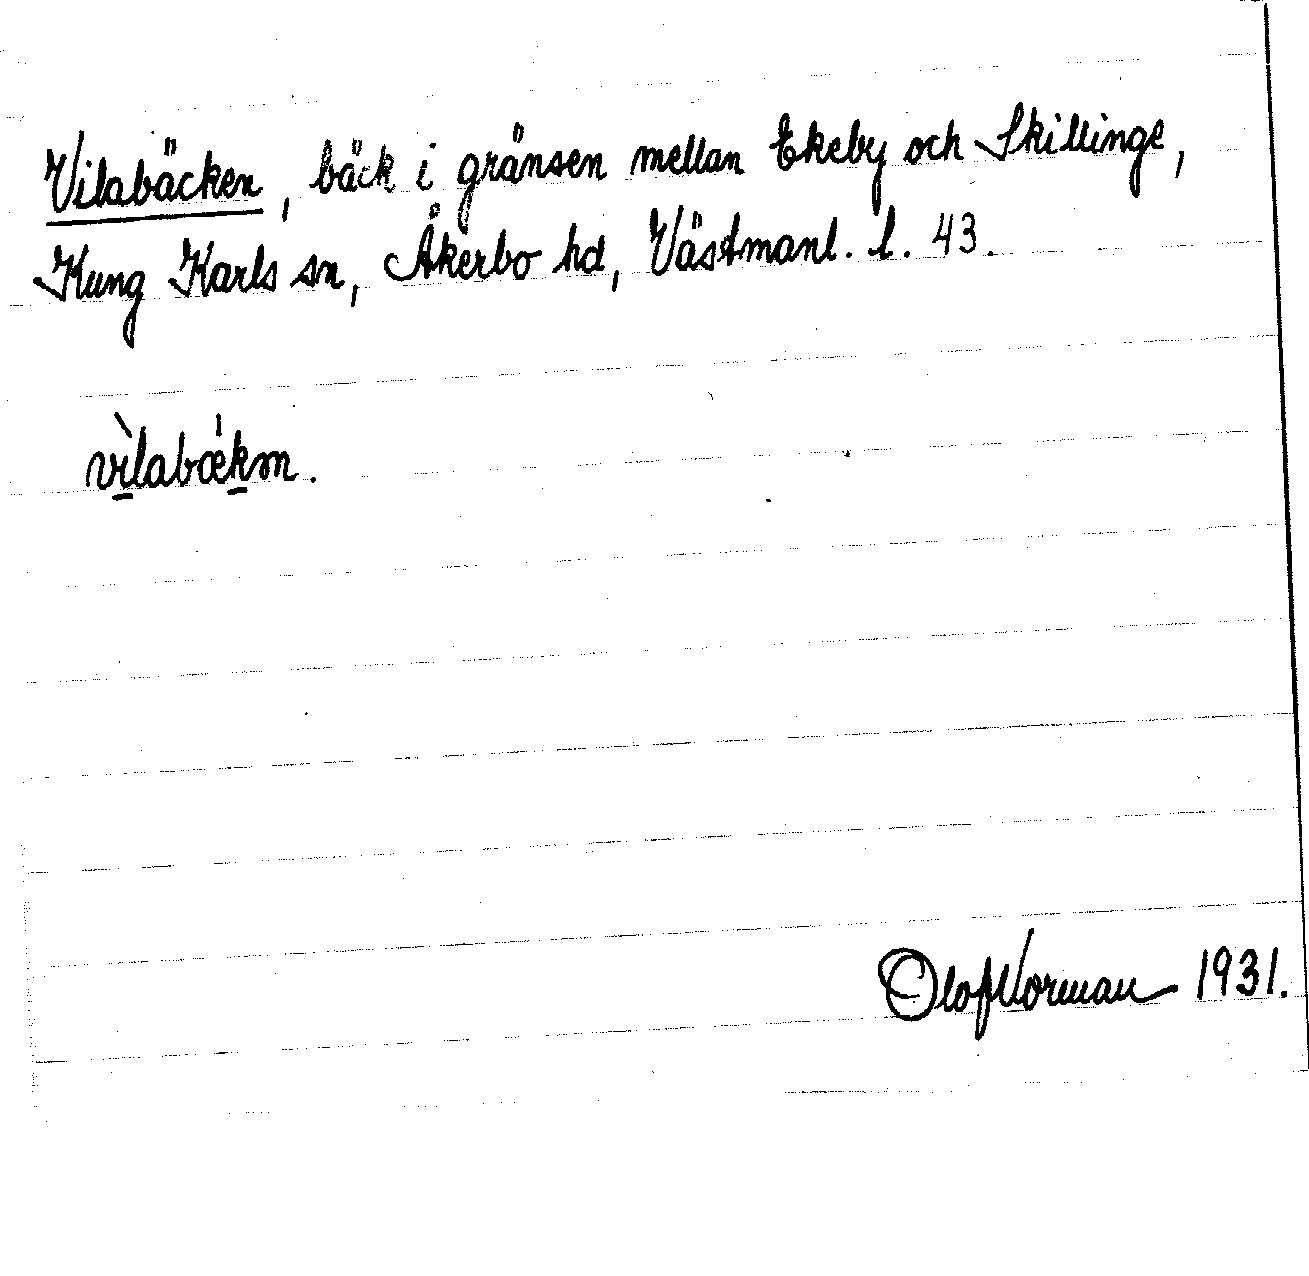 Vilabäcken, bäck i gränsen mellan Ekeby och Skillinge,
Kung Karls sn, Åkerbo hd, Västmanl. l. 43.
vìlabǽkm.
Olof Norman 1931.